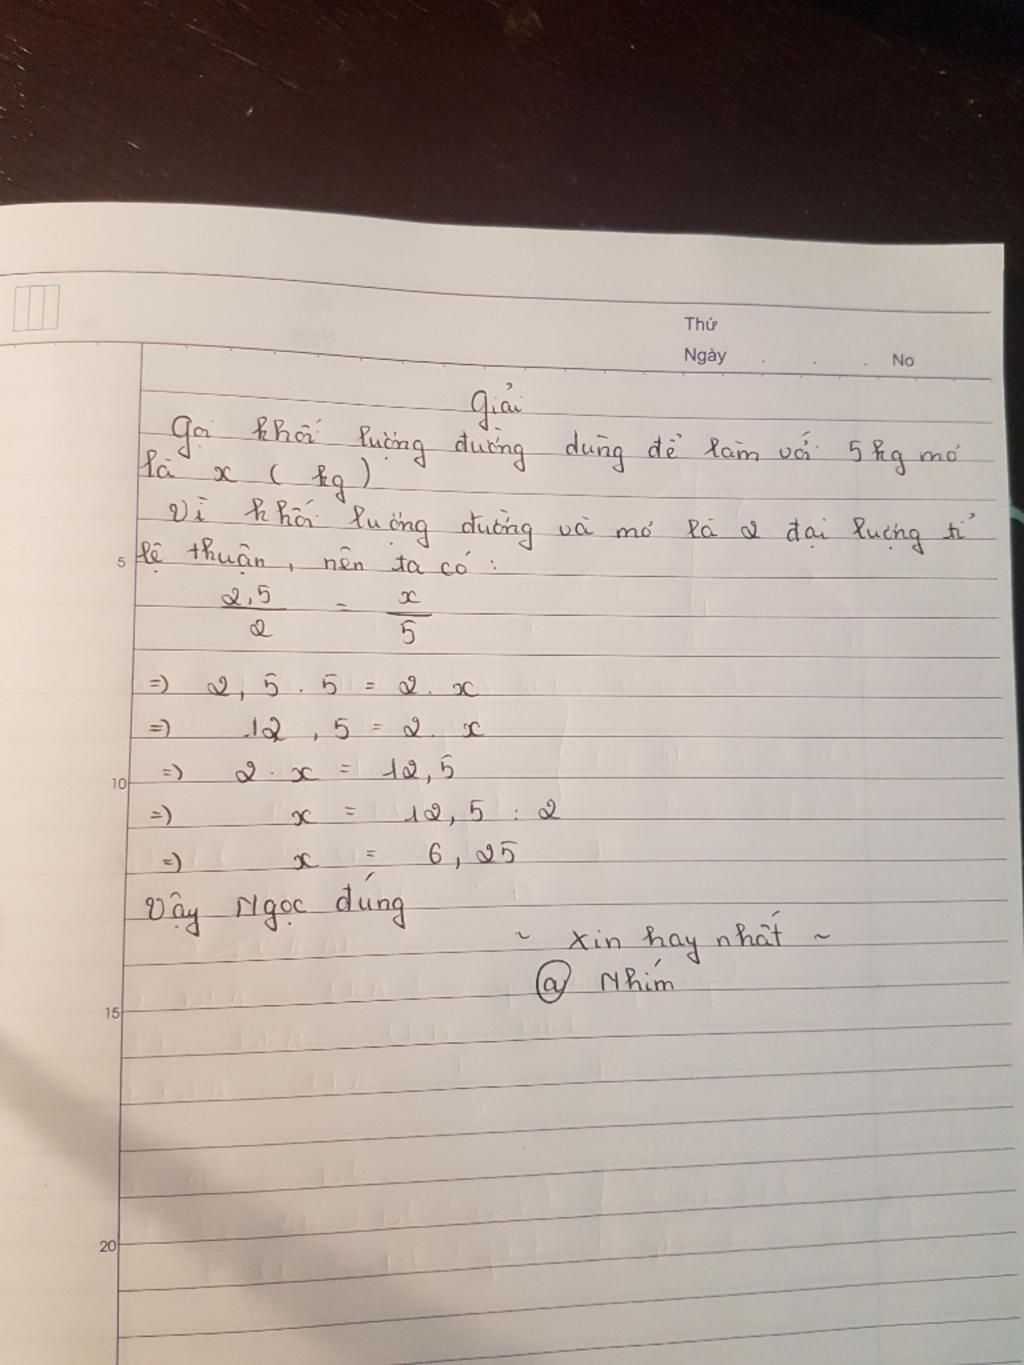 Thứ
Ngày . . . No
Giải
Gọi khối lượng đường dùng để làm với 5 kg mơ
là x ( kg )
Vì khối lượng đường và mơ là 2 đại lượng tỉ
lệ thuận, nên ta có :
2,5 / 2 = x / 5
=> 2,5 . 5 = 2 . x
=> 12,5 = 2 . x
=> 2 . x = 12,5
=> x = 12,5 : 2
=> x = 6,25
Vậy Ngọc đúng
~ xin hay nhất ~
@ Nhím
5
10
15
20